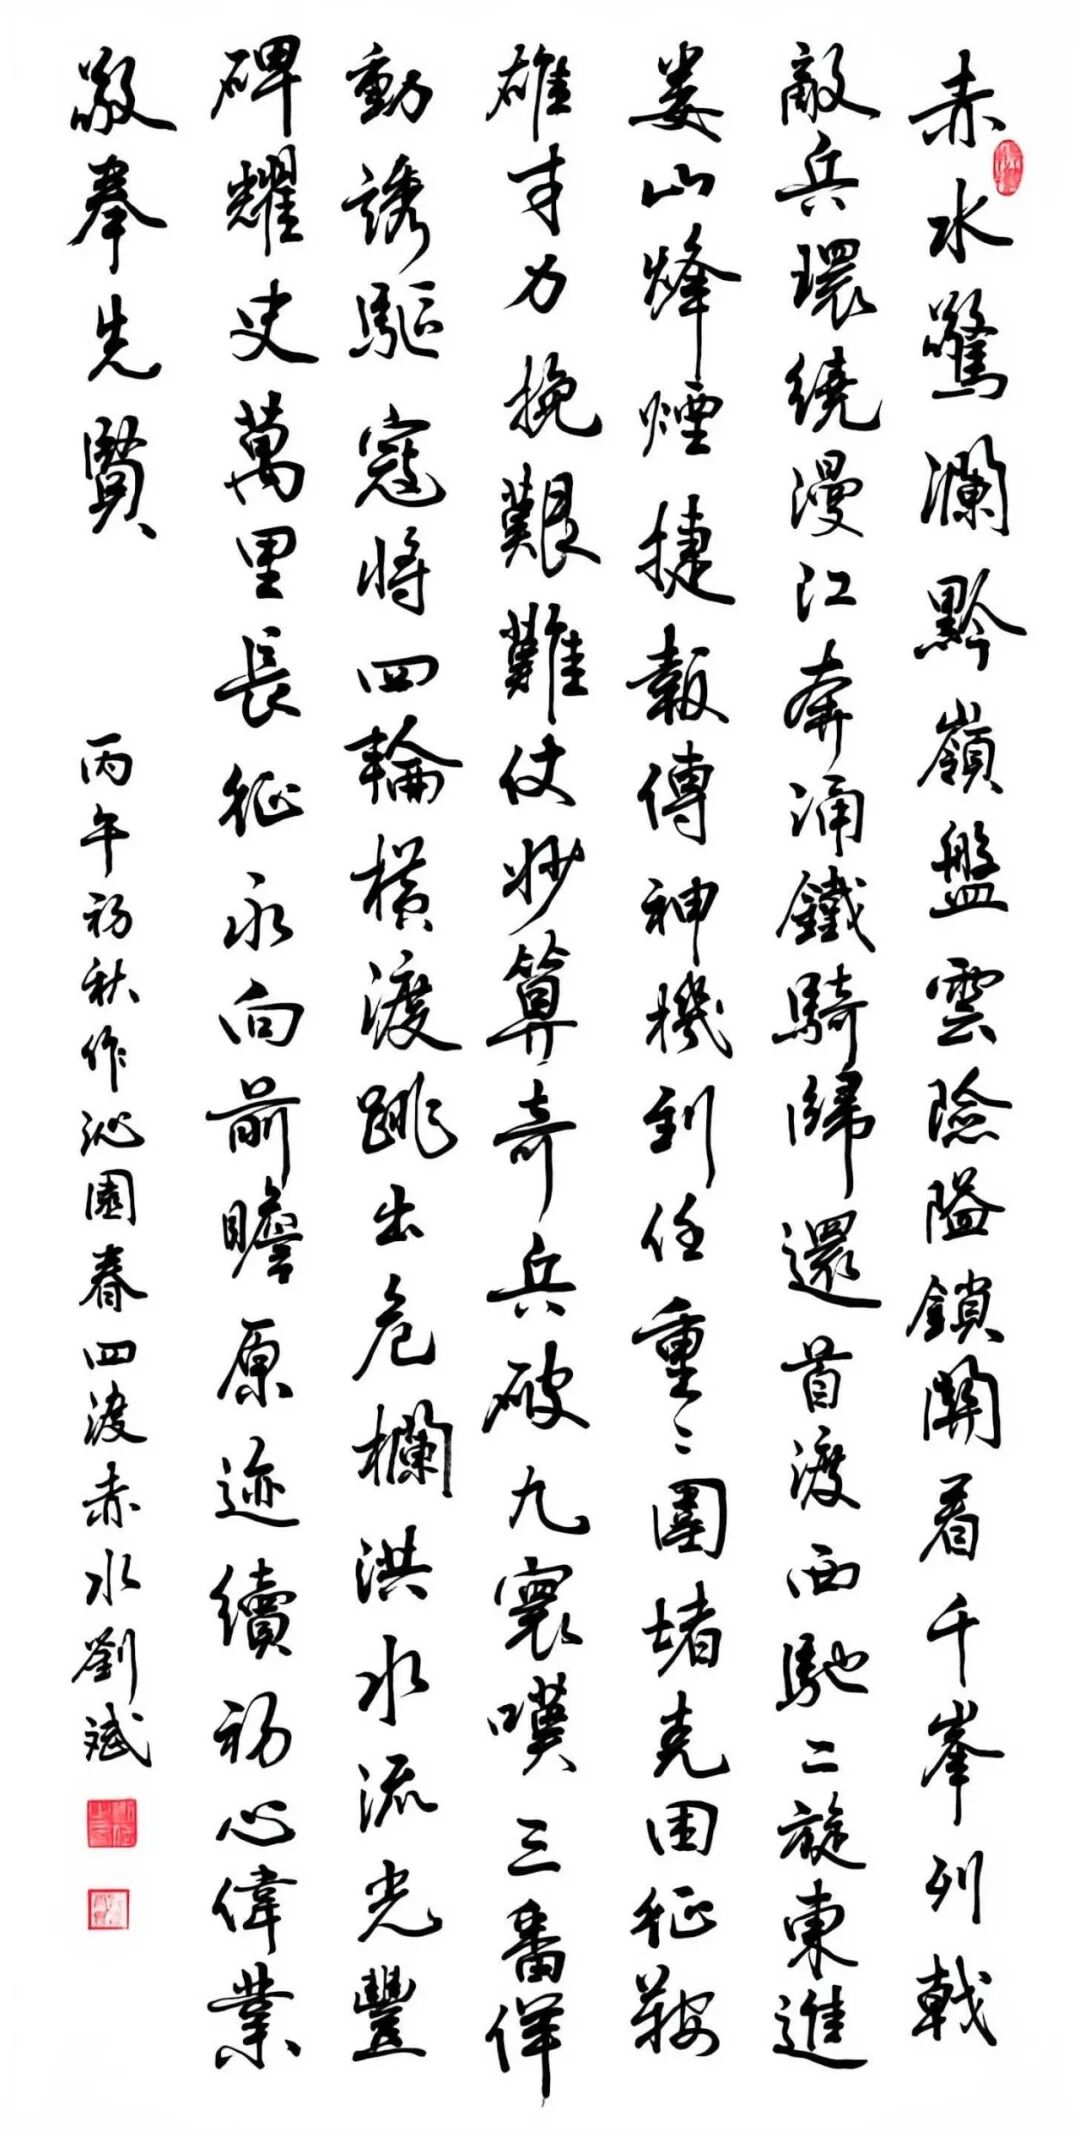 赤水驚瀾黔嶺盤雲險隘鎖關看千峯列戟
敵兵環繞漫江奔涌鐵騎歸還首渡西馳二旋東進
婁山烽煙捷報傳神機到任重〻圍堵克困征鞍
雄才力挽艱難仗妙算奇兵破九寰嘆三番佯
動誘驅寇將四輪橫渡跳出危欄洪水流光豐
碑耀史萬里長征永向前瞻原迹續初心偉業
敬奉先賢
丙午初秋作沁園春四渡赤水劉斌